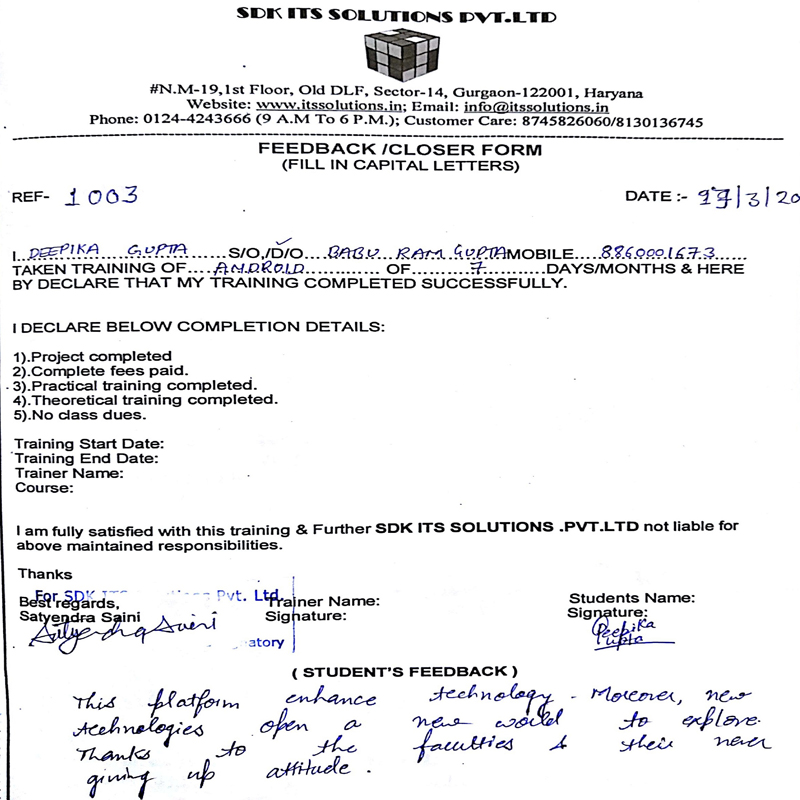 SDK ITS SOLUTIONS PVT.LTD
#N.M-19,1st Floor, Old DLF, Sector-14, Gurgaon-122001, Haryana
Website: www.itssolutions.in; Email: info@itssolutions.in
Phone: 0124-4243666 (9 A.M To 6 P.M.); Customer Care: 8745826060/8130136745
FEEDBACK /CLOSER FORM
(FILL IN CAPITAL LETTERS)
REF- 1003 DATE :- /3/20
I...DEEPIKA GUPTA......S/O,/D/O...BABU RAM GUPTA MOBILE....8860001673......
TAKEN TRAINING OF....ANDROID............. OF........7..........DAYS/MONTHS & HERE
BY DECLARE THAT MY TRAINING COMPLETED SUCCESSFULLY.
I DECLARE BELOW COMPLETION DETAILS:
1).Project completed
2).Complete fees paid.
3).Practical training completed.
4).Theoretical training completed.
5).No class dues.
Training Start Date:
Training End Date:
Trainer Name:
Course:
I am fully satisfied with this training & Further SDK ITS SOLUTIONS .PVT.LTD not liable for
above maintained responsibilities.
Thanks
For SDK ITS Pvt. Ltd.
Best regards, Trainer Name: Students Name:
Satyendra Saini Signature: Signature:
Satyendra Saini atory Deepika
Gupta
( STUDENT'S FEEDBACK )
This platform enhance technology. Moreover, new
technologies open a new world to explore.
Thanks to the faculties & their never
giving up attitude.